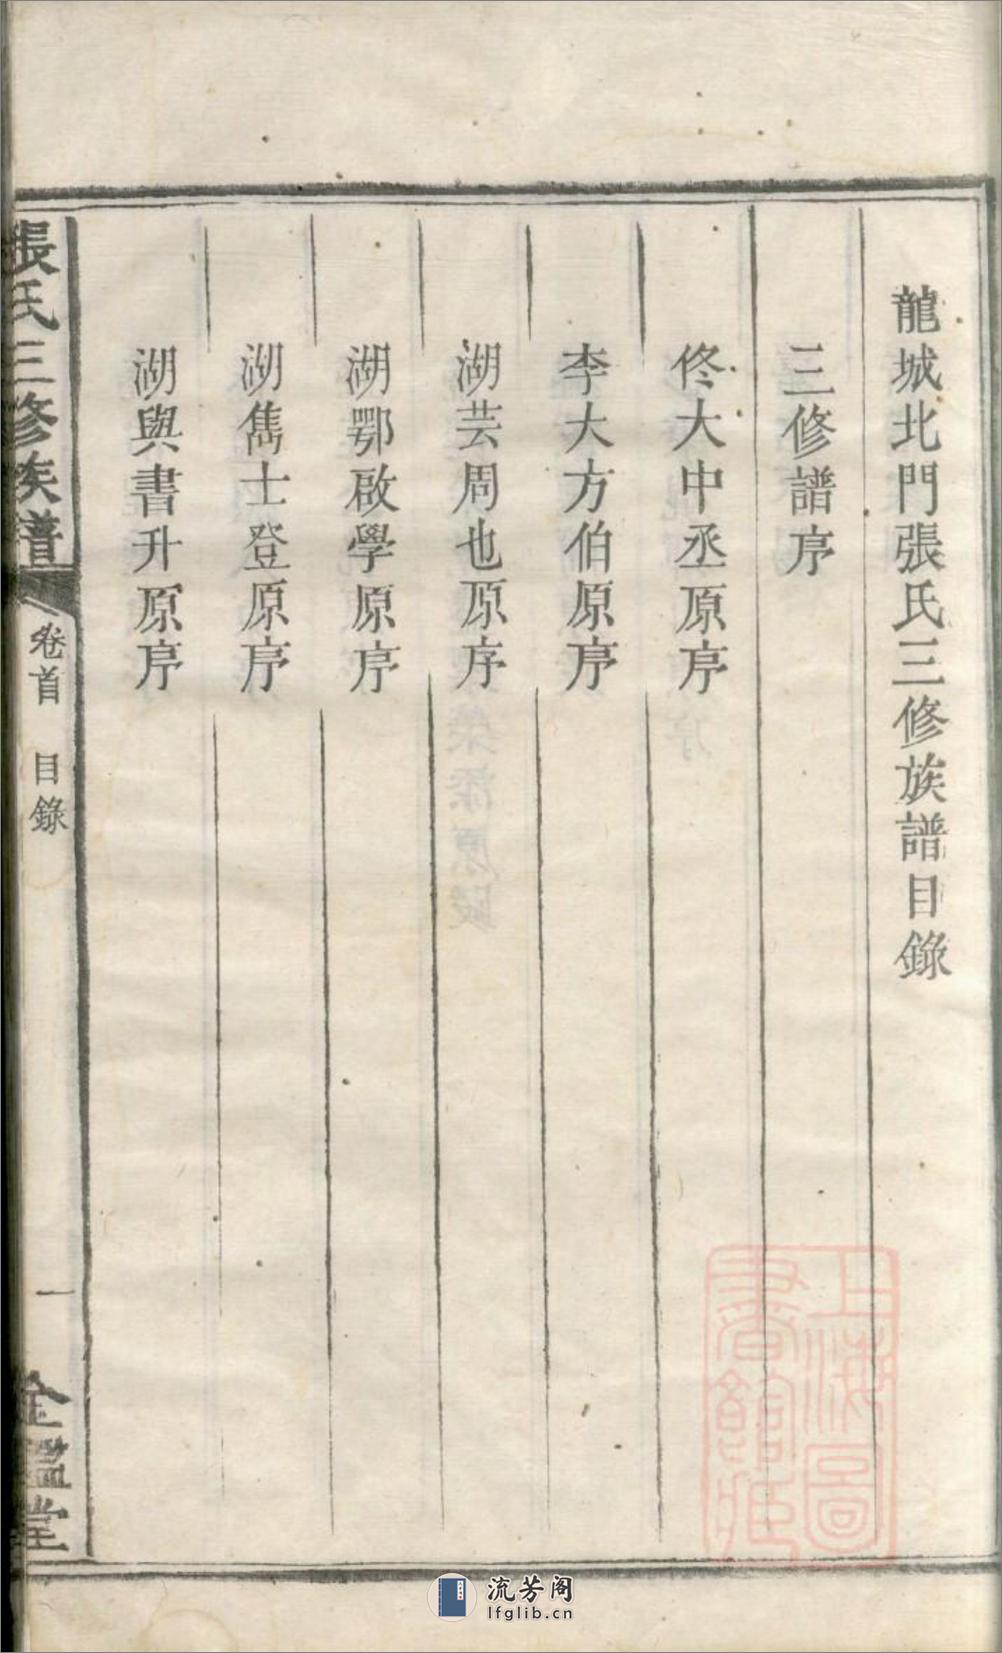 龍城北門張氏三修族譜目錄
三修譜序
佟大中丞原序
李大方伯原序
湖芸周也原序
湖鄂啟學原序
湖雋士登原序
湖與書升原序
張氏三修族譜
卷首 目錄
一
金鑑堂
上海圖書館藏
流芳阁
lfglib.cn